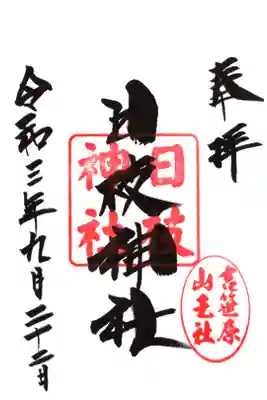 奉拝
日枝神社
日枝神社
吉笹原
山王社
令和三年九月二十二日